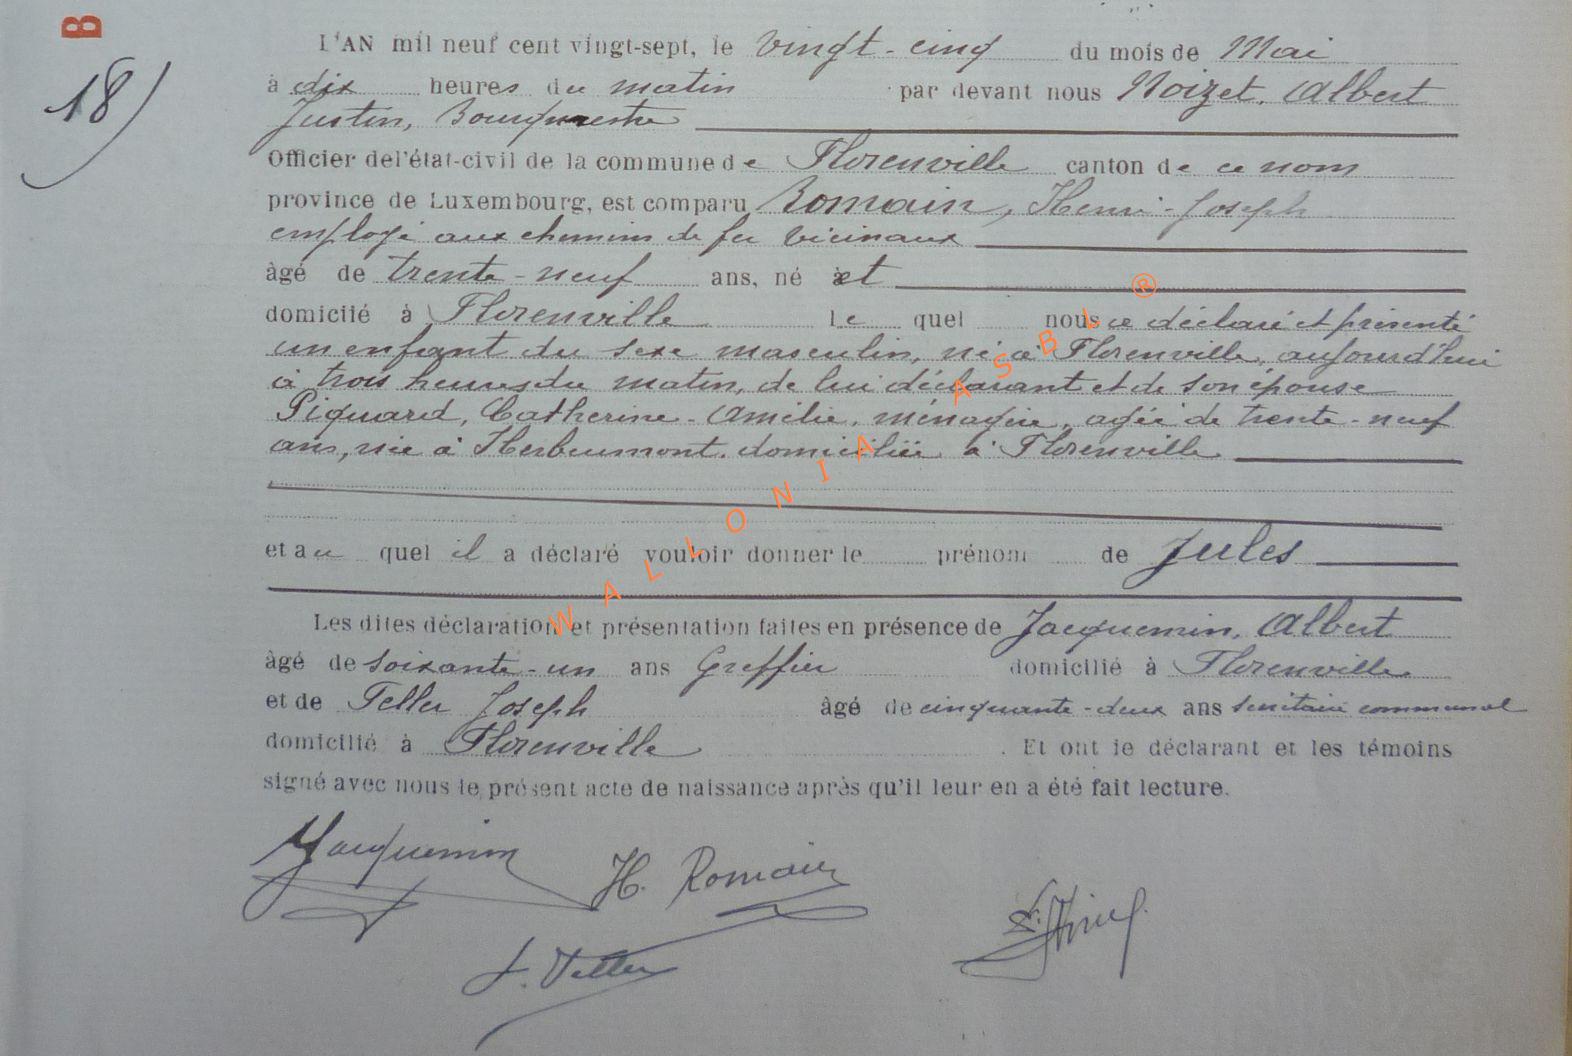 B
18)
L'AN mil neuf cent vingt-sept, le vingt-cinq du mois de Mai
à dix heures du matin par devant nous Noizet, Albert
Justin, Bourgmestre
Officier de l'état-civil de la commune de Florenville canton de ce nom
province de Luxembourg, est comparu Romain, Henri-Joseph
employé aux chemins de fer vicinaux
âgé de trente-neuf ans, né à et
domicilié à Florenville le quel nous a déclaré et présenté
un enfant du sexe masculin, né à Florenville, aujourd'hui
à trois heures du matin, de lui déclarant et de son épouse
Piquard, Catherine-Amélie, ménagère, agée de trente-neuf
ans, née à Herbeumont, domiciliée à Florenville
et au quel il a déclaré vouloir donner le prénom de Jules
Les dites déclaration et présentation faites en présence de Jacquemin, Albert
âgé de soixante-un ans Greffier domicilié à Florenville
et de Teller Joseph âgé de cinquante-deux ans secrétaire communal
domicilié à Florenville. Et ont le déclarant et les témoins
signé avec nous le présent acte de naissance après qu'il leur en a été fait lecture.
Jacquemin H. Romain
J. Teller
WALLONIA ASBL ®